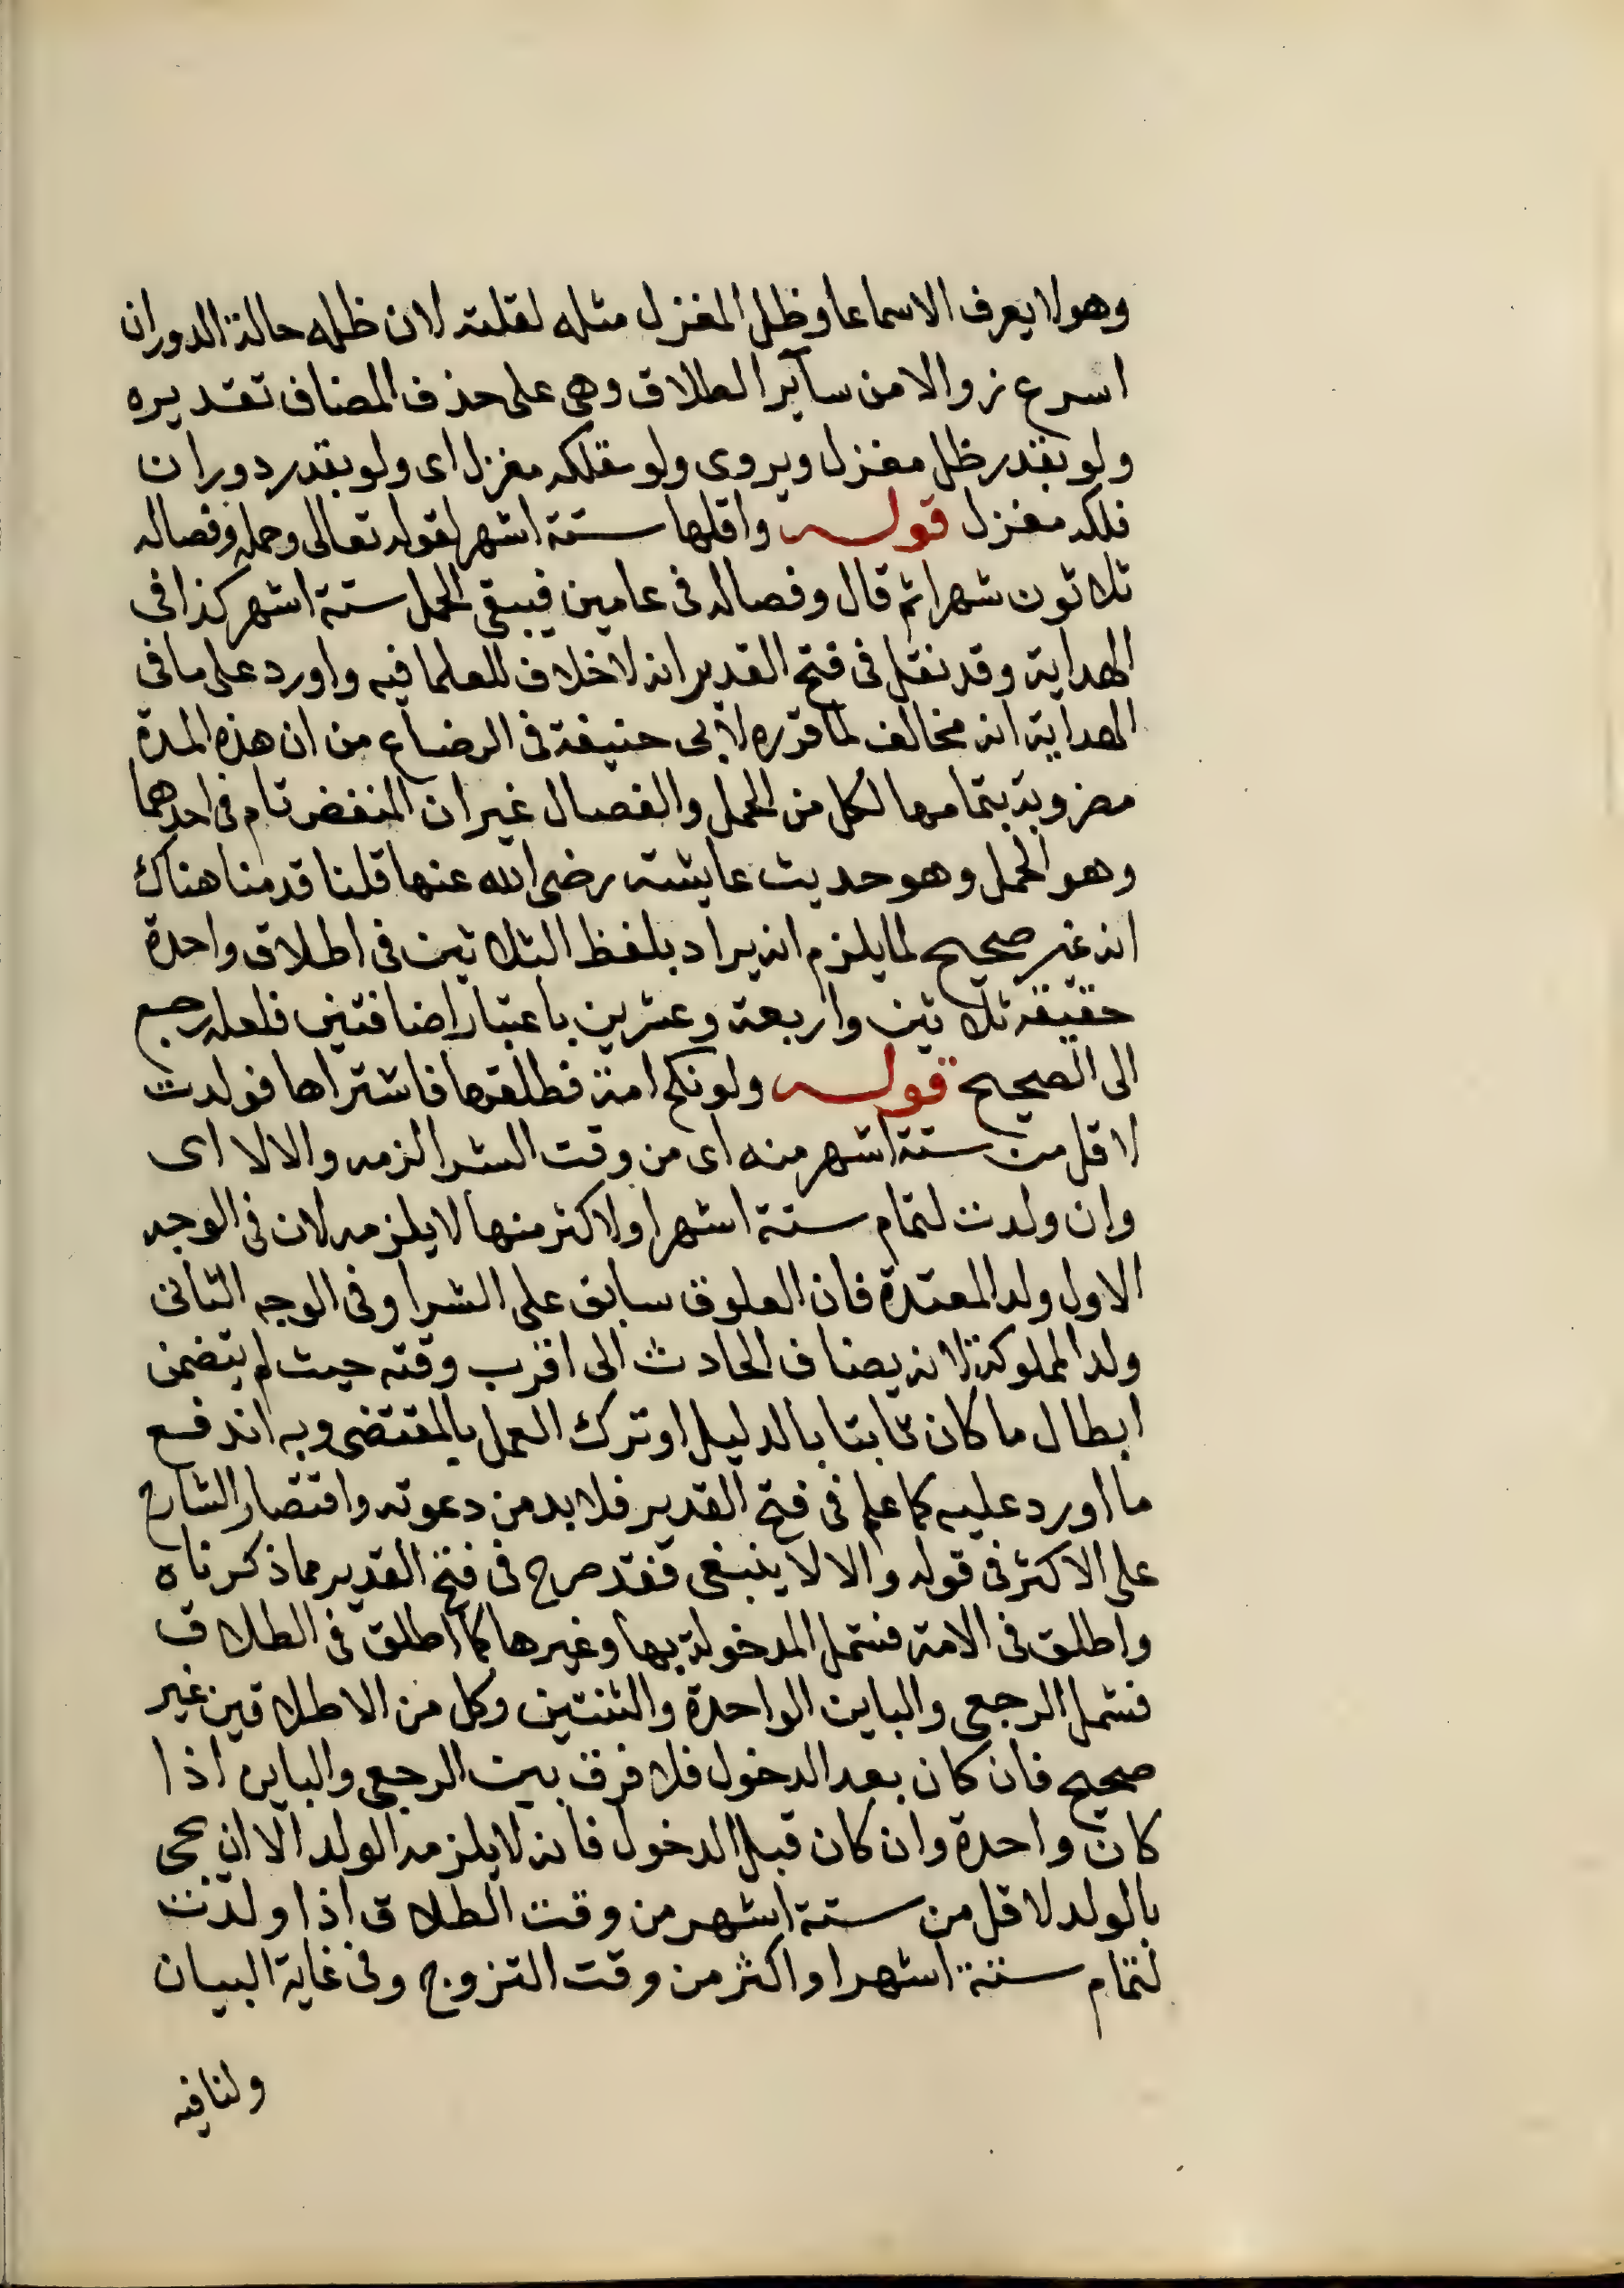 وهو لا يعرف الا سماعا وظل المغزل مثله لقلته لان ظله حالة الدوران
اسرع زوالا من سآير الطلاق وهى على حذف المضاف تقديره
ولو بقدر ظل مغزل ويروى ولو بفلكه مغزل اى ولو بقدر دوران
فلكه مغزل قوله واقلها ستة اشهر لقوله تعالى وحمله وفصاله
ثلاثون شهرا ثم قال وفصاله فى عامين فيبقى للحمل ستة اشهر كذا فى
الهداية وقد نقل فى فتح القدير انه لا خلاف للعلما فيه واورد على ما فى
الهداية انه مخالف لما قرره لابى حنيفة فى الرضاع من ان هذه المدة
مضروبة بتمامها لكل من الحمل والفصال غير ان المنقض تام فى احدهما
وهو الحمل وهو حديث عايشة رضى الله عنها قلنا قدمنا هناك
انه غير صحيح لما يلزم انه يراد بلفظ الثلاثين فى اطلاق واحدة
حقيقة ثلاثين واربعة وعشرين باعتبار اضافتين فلعله رجع
الى الصحيح قوله ولو نكح امة فطلقها فاشتراها فولدت
لاقل من ستة اشهر منه اى من وقت الشرا لزمه والا لا اى
وان ولدت لتمام ستة اشهر او لاكثر منها لا يلزمه لان فى الوجه
الاول ولد المعتدة فان العلوق سابق على الشرا وفى الوجه الثانى
ولد المملوكة لانه يضاف الحادث الى اقرب وقته حيث لم يتضمن
ابطال ما كان ثابتا بالدليل او ترك العمل بالمقتضى وبه اندفع
ما اورد عليه كما علم فى فتح القدير فلا بد من دعوته واقتصار الشارح
على الاكثر فى قوله والا لا ينبغى فقد صرح فى فتح القدير مما ذكرناه
واطلق فى الامة فشمل المدخولة بها وغيرها كما اطلق فى الطلاق
فشمل الرجعى والباين الواحدة والثنتين وكل من الاطلاقين غير
صحيح فان كان بعد الدخول فلا فرق بين الرجعى والباين اذا
كان واحدة وان كان قبل الدخول فانه لا يلزمه الولد الا ان تجى
بالولد لاقل من ستة اشهر من وقت الطلاق اذا ولدت
لتمام ستة اشهر او اكثر من وقت التزوج وفى غاية البيان
ولنا فيه